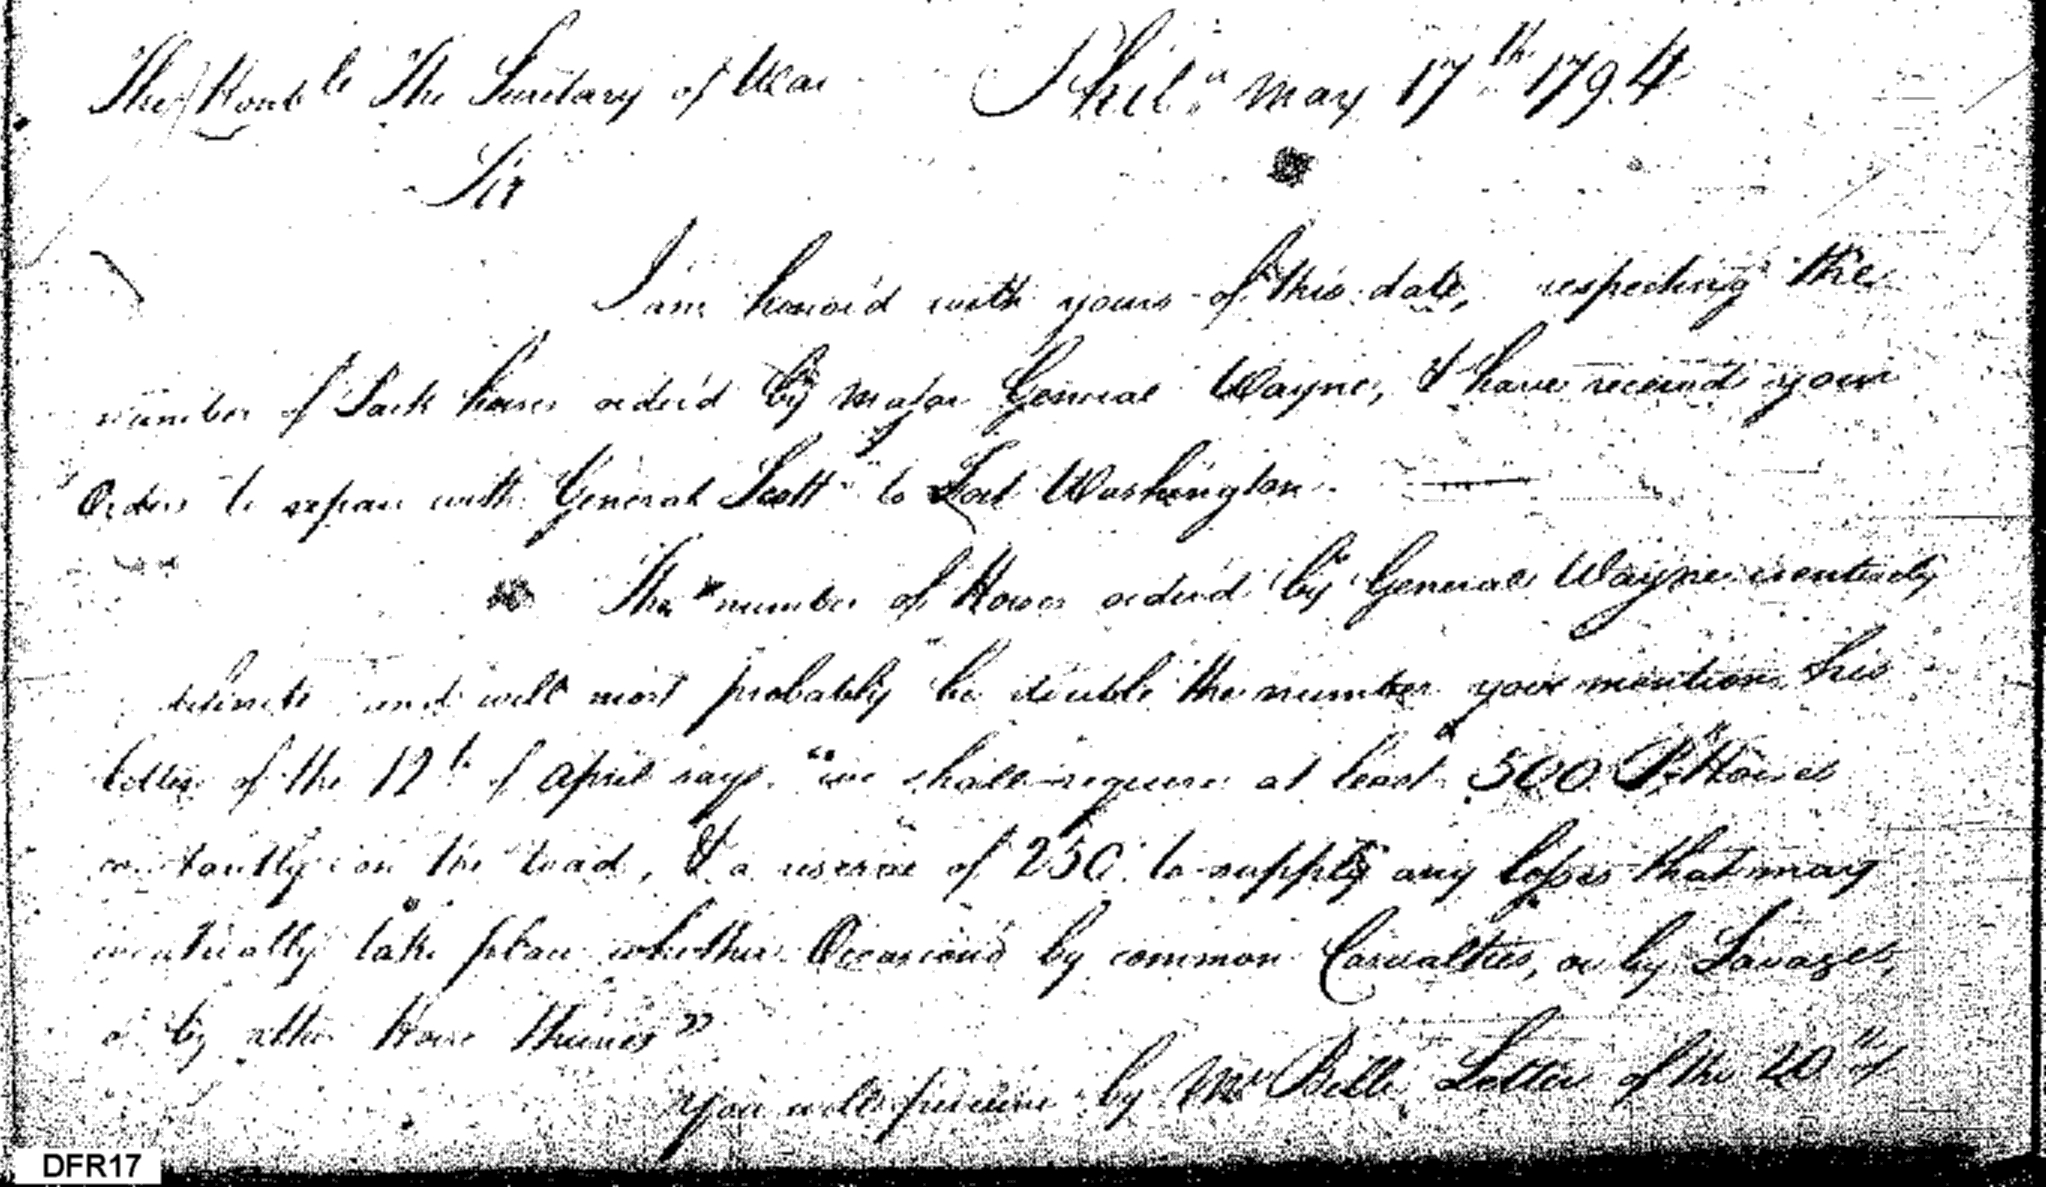 The Honble The Secretary of War Phila May 17th 1794
Sir
I am honor'd with yours of this date, respecting the
number of Pack horses order'd by Major General Wayne, & have received your
Orders to repair with General Scott to Fort Washington.
The number of Horses order'd by General Wayne is entirely
definite and will most probably be double the number you mention his
letter of the 12th of April says "we shall require at least 500 P. Horses
constantly on the road, & a reserve of 250 to supply any losses that may
eventually take place whether Occasion'd by common Casualties, or by Savages,
or by other Horse thieves"
You will perceive by Mr Belli Letter of the 20th of
DFR17